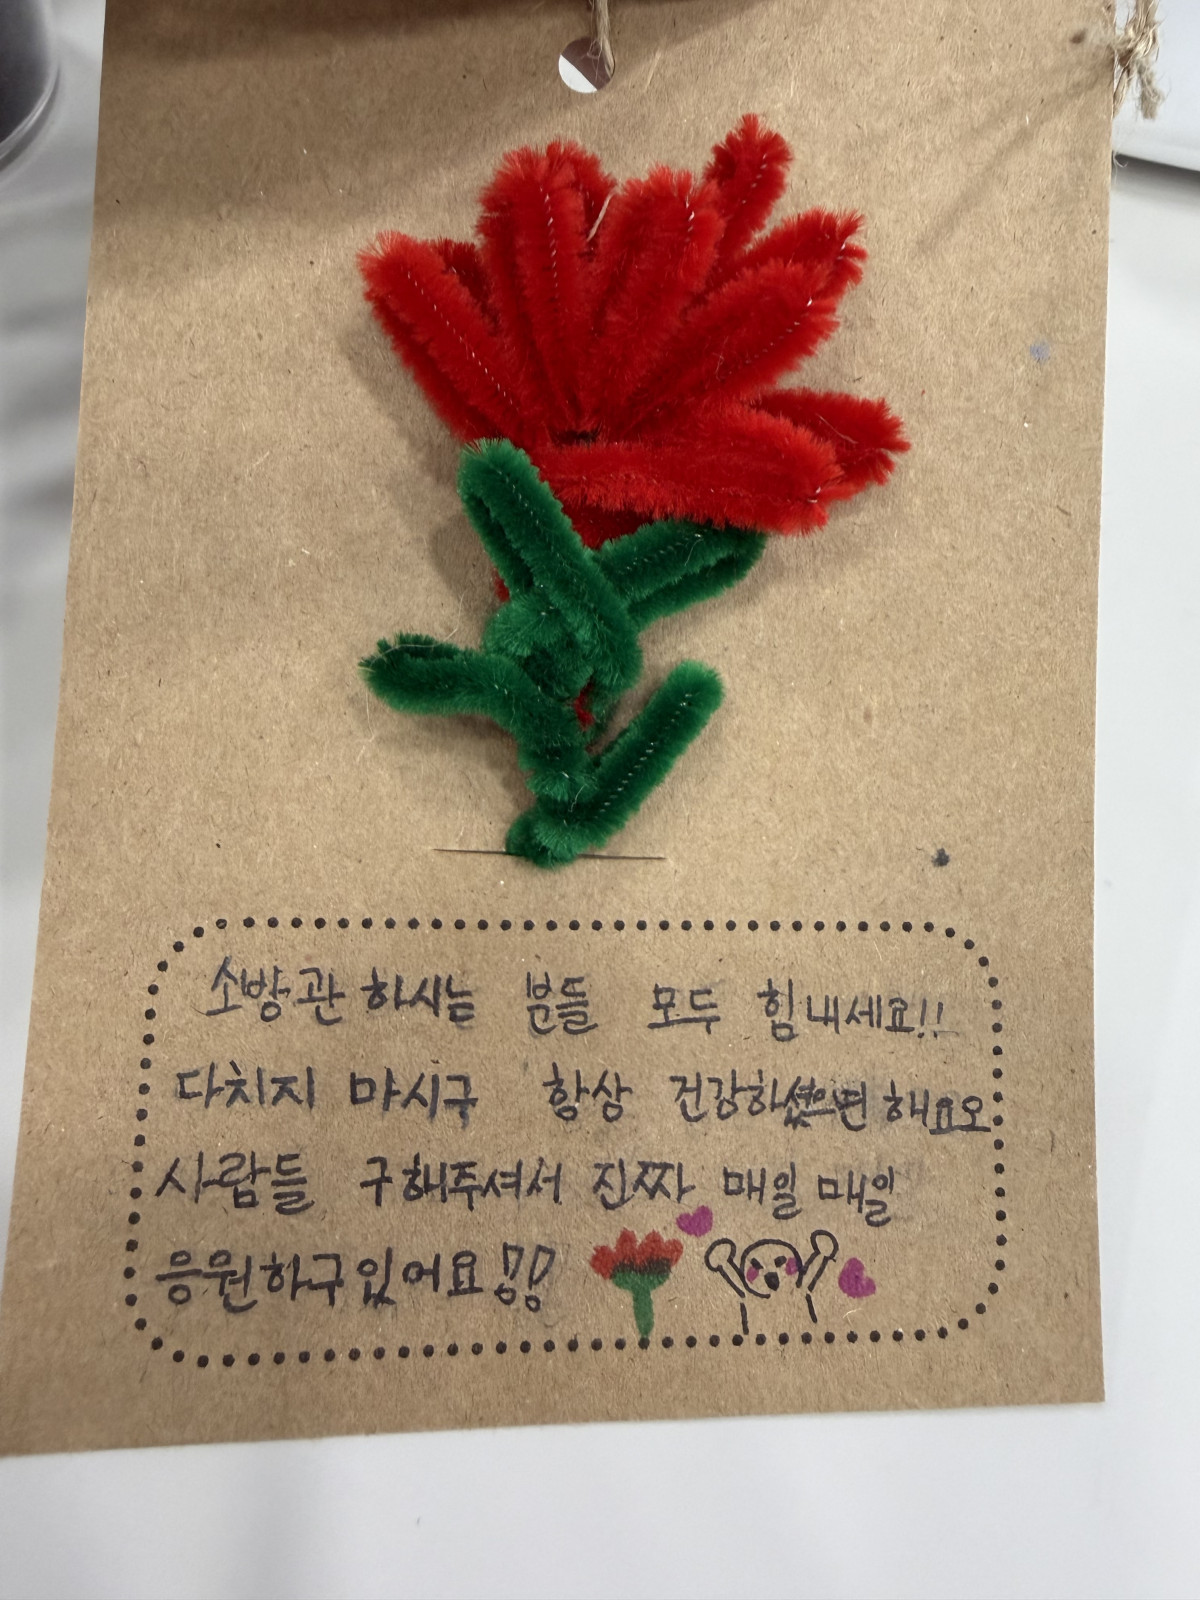 소방관 하시는 분들 모두 힘내세요!!
다치지 마시구 항상 건강하셨으면 해요오
사람들 구해주셔서 진짜 매일 매일
응원하구있어요!!